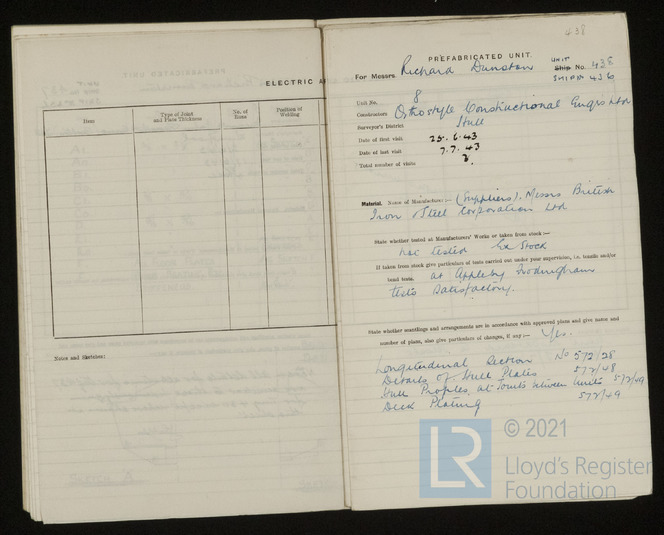 ELECTRIC A
Item
Type of Joint
and Plate Thickness
No. of
Runs
Position of
Welding
Notes and Sketches:
438
PREFABRICATED UNIT.
For Messrs. Richard Dunston
UNIT
Ship No. 438
SHIP No 436
Unit No. 8
Constructors Orthostyle Constructional Engrs Ltd
Surveyor's District Hull
Date of first visit 25.6.43
Date of last visit 7.7.43
Total number of visits
Material. Name of Manufacturer:— (Suppliers). Messrs British
Iron & Steel Corporation Ltd
State whether tested at Manufacturers' Works or taken from stock:—
Not tested Ex Stock
If taken from stock give particulars of tests carried out under your supervision, i.e. tensile and/or
bend tests. at Appleby Frodingham
tests satisfactory.
State whether scantlings and arrangements are in accordance with approved plans and give name and
number of plans, also give particulars of changes, if any:— Yes.
Longitudinal Section No 572/28
Details of Hull Plates 572/48
Hull Profiles at Joints between Units 572/49
Deck Plating 572/49
LR
© 2021
Lloyd's Register
Foundation